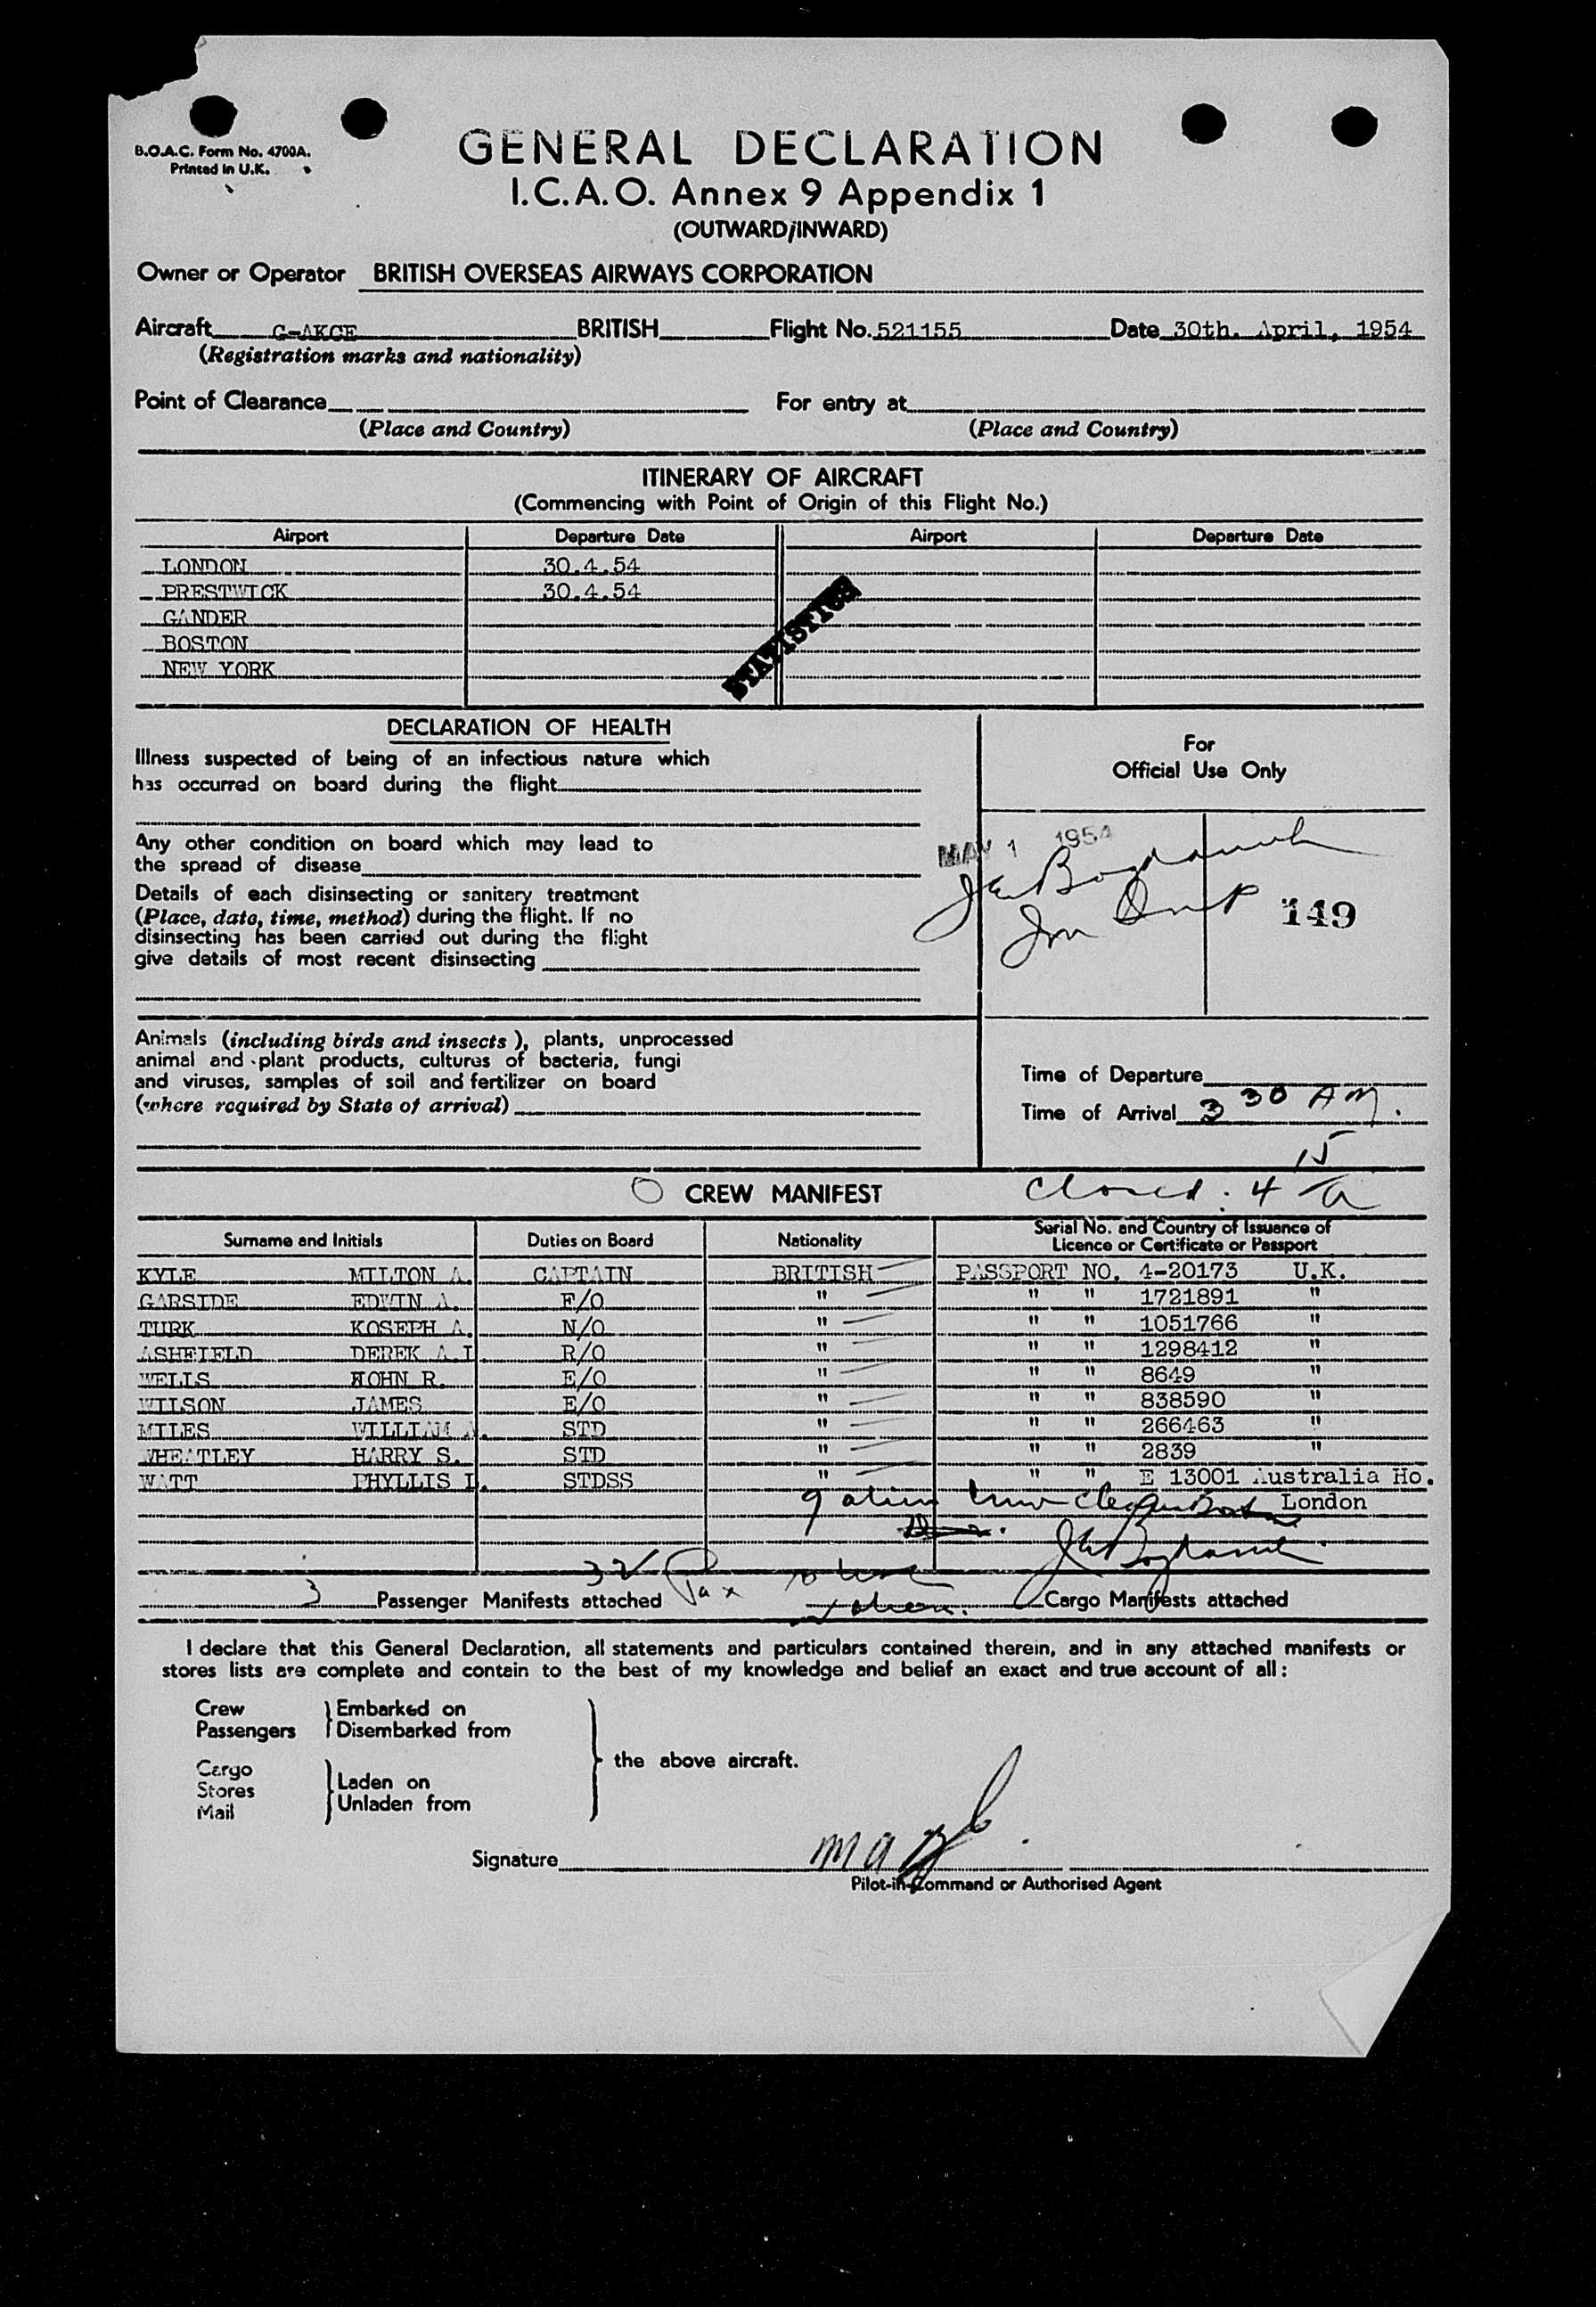 B.O.A.C. Form No. 4700A.
Printed in U.K.
GENERAL DECLARATION
I.C.A.O. Annex 9 Appendix 1
(OUTWARD/INWARD)
Owner or Operator BRITISH OVERSEAS AIRWAYS CORPORATION
Aircraft G-AKCE BRITISH Flight No. 521155 Date 30th. April, 1954
(Registration marks and nationality)
Point of Clearance For entry at
(Place and Country) (Place and Country)
ITINERARY OF AIRCRAFT
(Commencing with Point of Origin of this Flight No.)
Airport Departure Date Airport Departure Date
LONDON 30.4.54
PRESTWICK 30.4.54
GANDER
BOSTON
NEW YORK
STATISTICS
DECLARATION OF HEALTH
Illness suspected of being of an infectious nature which
has occurred on board during the flight
Any other condition on board which may lead to
the spread of disease
Details of each disinsecting or sanitary treatment
(Place, date, time, method) during the flight. If no
disinsecting has been carried out during the flight
give details of most recent disinsecting
Animals (including birds and insects), plants, unprocessed
animal and plant products, cultures of bacteria, fungi
and viruses, samples of soil and fertilizer on board
(where required by State of arrival)
For
Official Use Only
MAY 1 1954
149
Time of Departure
Time of Arrival 3 30 AM.
Closed. 4 15
CREW MANIFEST
Surname and Initials Duties on Board Nationality Serial No. and Country of Issuance of
Licence or Certificate or Passport
KYLE MILTON A. CAPTAIN BRITISH PASSPORT NO. 4-20173 U.K.
GARSIDE EDWIN A. F/O " " " 1721891 "
TURK KOSEPH A. N/O " " " 1051766 "
ASHFIELD DEREK A.I R/O " " " 1298412 "
WELLS HOHN R. E/O " " " 8649 "
WILSON JAMES E/O " " " 838590 "
MILES WILLIAM A. STD " " " 266463 "
WHEATLEY HARRY S. STD " " " 2839 "
WATT PHYLLIS I. STDSS " " " E 13001 Australia Ho.
London
9 alien
32 Pax
3 Passenger Manifests attached Cargo Manifests attached
I declare that this General Declaration, all statements and particulars contained therein, and in any attached manifests or
stores lists are complete and contain to the best of my knowledge and belief an exact and true account of all:
Crew Embarked on
Passengers Disembarked from
the above aircraft.
Cargo
Stores Laden on
Mail Unladen from
Signature
Pilot-in-Command or Authorised Agent